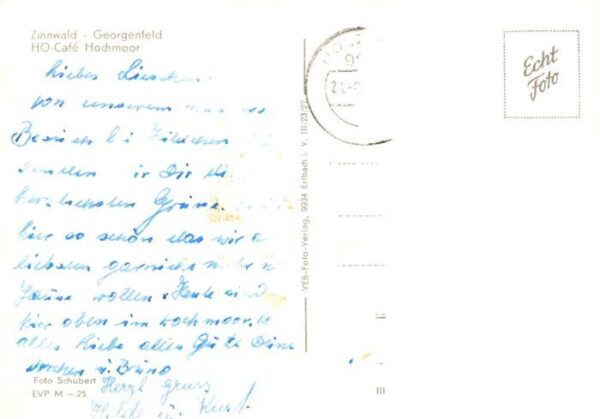 Zinnwald - Georgenfeld
HO-Café Hochmoor
Liebes Lieschen
von unserem
Besuch Hildchen
senden wir Dir die
herzlichsten Grüsse
hier so schön das wir a
liebsten garnicht mehr n
Hause wollen. Heute sind
hier oben im Hochmoor.
alles Liebe alles Gute Deine
u. Bruno
Foto Schubert
EVP M -.25
Herzl gruss
Hilde u. Kurt
VEB-Foto-Verlag, 9934 Erlbach i. V. III/23/27
Echt
Foto